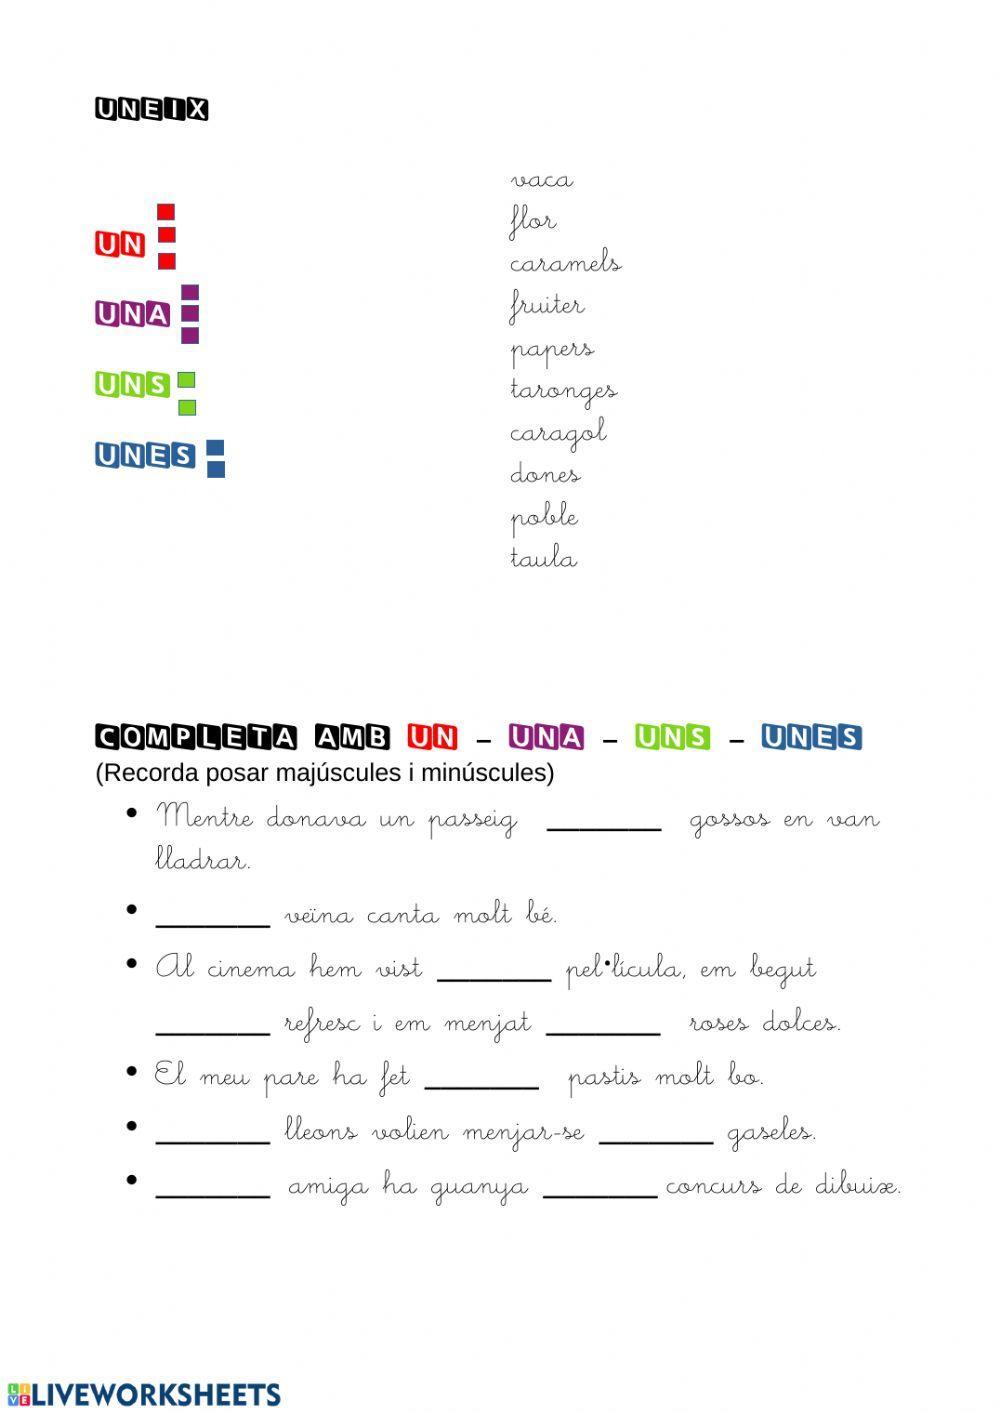 UNEIX
vaca
flor
UN
caramels
UNA
fruiter
papers
UNS
taronges
caragol
UNES
dones
poble
taula
COMPLETA AMB UN – UNA – UNS – UNES
(Recorda posar majúscules i minúscules)
• Mentre donava un passeig ________ gossos en van
lladrar.
• ________ veïna canta molt bé.
• Al cinema hem vist ________ pel•lícula, em begut
________ refresc i em menjat ________ roses dolces.
• El meu pare ha fet ________ pastis molt bo.
• ________ lleons volien menjar-se ________ gaseles.
• ________ amiga ha guanya ________ concurs de dibuix.
LIVEWORKSHEETS